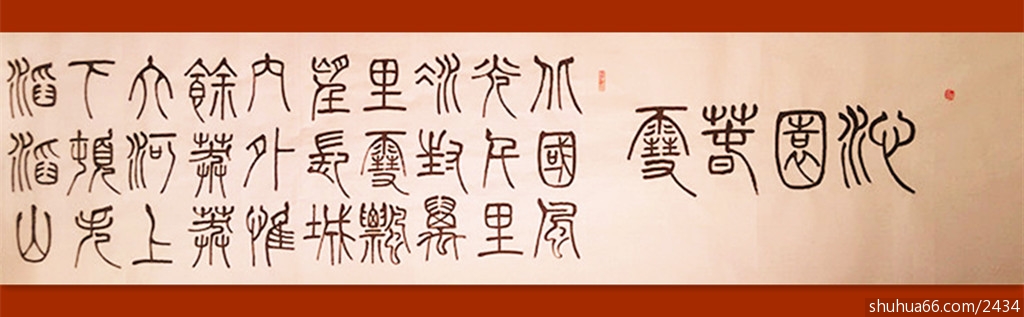 沁園春雪
北國風
光千里
冰封萬
里雪飄
望長城
內外惟
餘莽莽
大河上
下頓失
滔滔山
shuhua66.com/2434